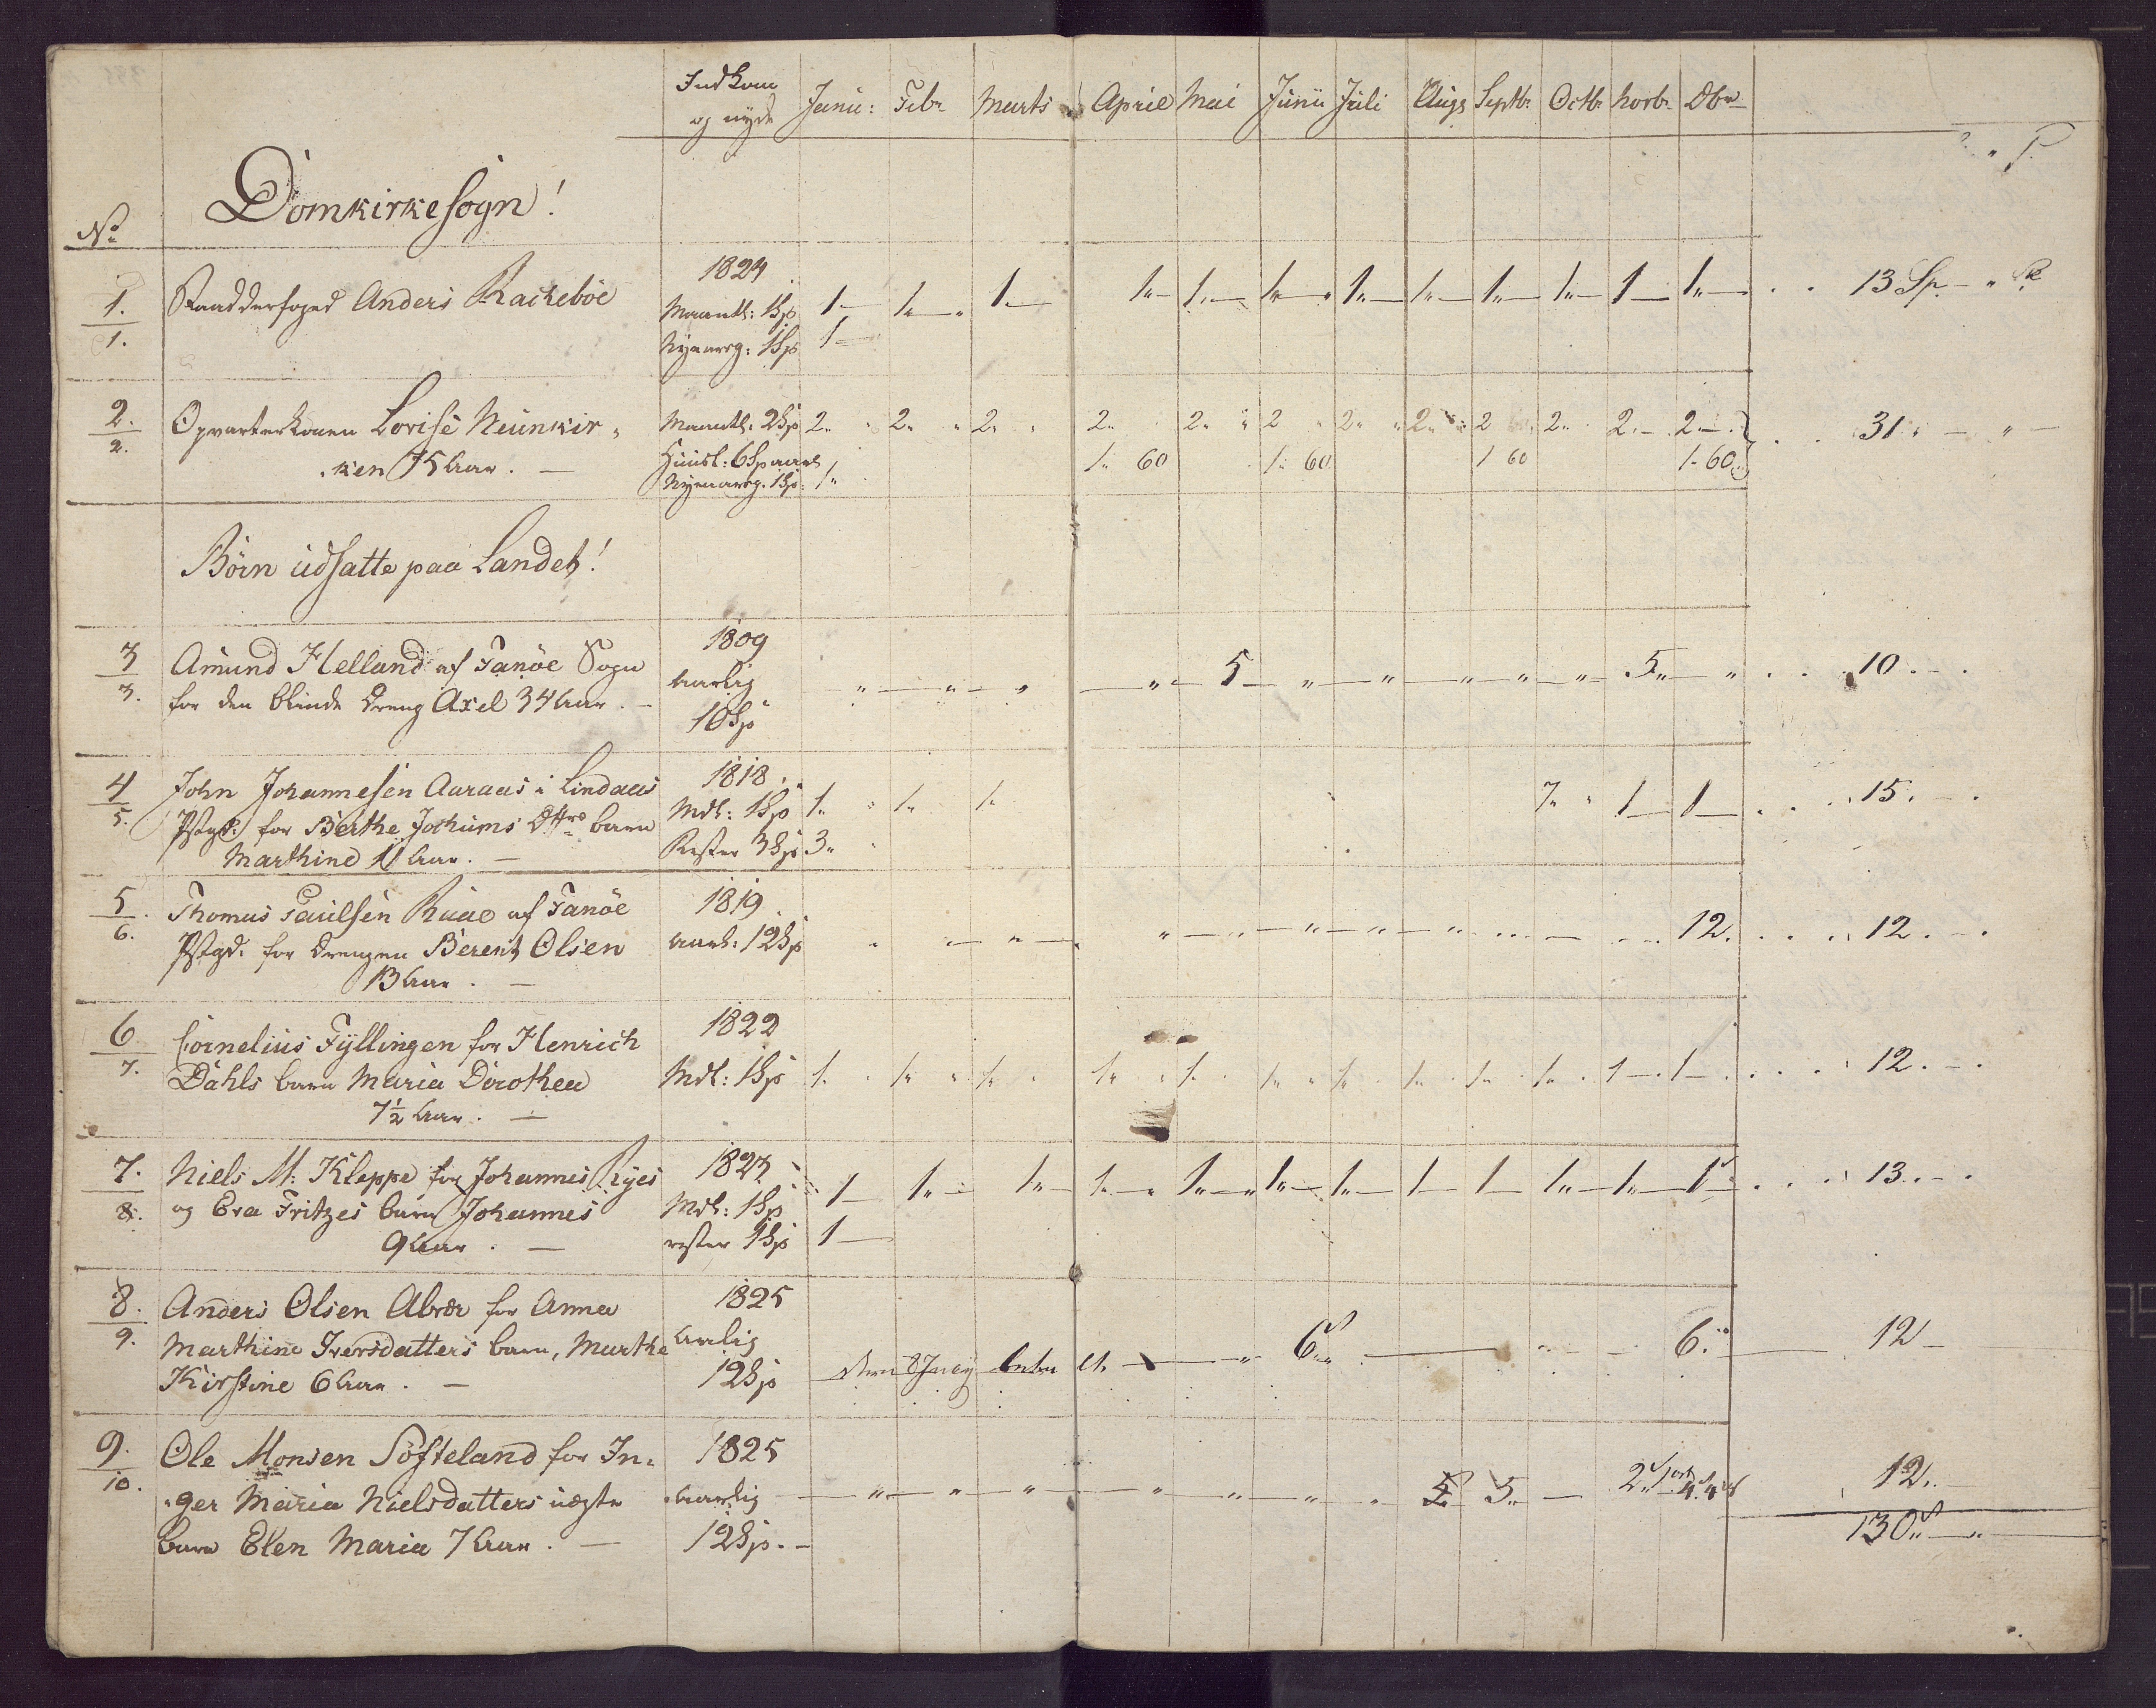 Indkom
og nyde Janu: Febr Marts April Mai Junii Juli Augs Septbr. Octbr. Novbr. Dbr
Domkirkesogn!
No
1.
1.
Anders Rachebøe
1824
Maantl: 1Sp
Nyaarsg: 1Sp
1 1 1 1 1 1 1 1 1 1 1 1 13 Sp
1
2.
2.
Opvarterkonen Lovise Neunkir„
„ken 75 Aar.
Maantl. 2Sp
Huusl: 6Sp aarl
Nyeaarsg. 1Sp:
2 2 2 2 2 2 2 2 2 2 2 2 31
1 60 1 60 1 60 1 60
1
Børn udsatte paa Landet!
3
3.
Amund Helland af Fanøe Sogn
for den blinde Dreng Axel 34 Aar.
1809
Aarlig
10Sp
5 5 10
4
5.
John Johannesen Aaraas i Lindaas
Pstgd: for Berthe Jochums Dttrs barn
Marthine 11 Aar.
1818
Mdl: 1Sp
Rester 3Sp
1 1 1 7 1 1 15.
3
5.
6.
Thomas Paulsen Ruae af Fanøe
Pstgd. for Drengen Berent Olsen
13 Aar.
1819
Aarl: 12Sp
12. 12.
6
7.
Cornelius Fyllingen for Henrich
Dahls barn Maria Dorothea
7½ Aar.
1822
Mdl: 1Sp
1 1 1 1 1 1 1 1 1 1 1 1 12.
7.
8.
Niels M: Kleppe for Johannes Ryes
og Eva Fritzes barn Johannes
9 Aar.
1823
Mdl: 1Sp
rester 1Sp
1 1 1 1 1 1 1 1 1 1 1 1 13.
1
8.
9.
Anders Olsen for Anna
Marthine Iversdatters barn, Marthe
Kirstine 6 Aar.
1825
Aarlig
12Sp
6 6. 12
9.
10.
Ole Monsen Søfteland for In„
„ger Maria Nielsdatters uægte
barn Elen Maria 7 Aar.
1825
Aarlig
12Sp.
5 5 2 12.
130